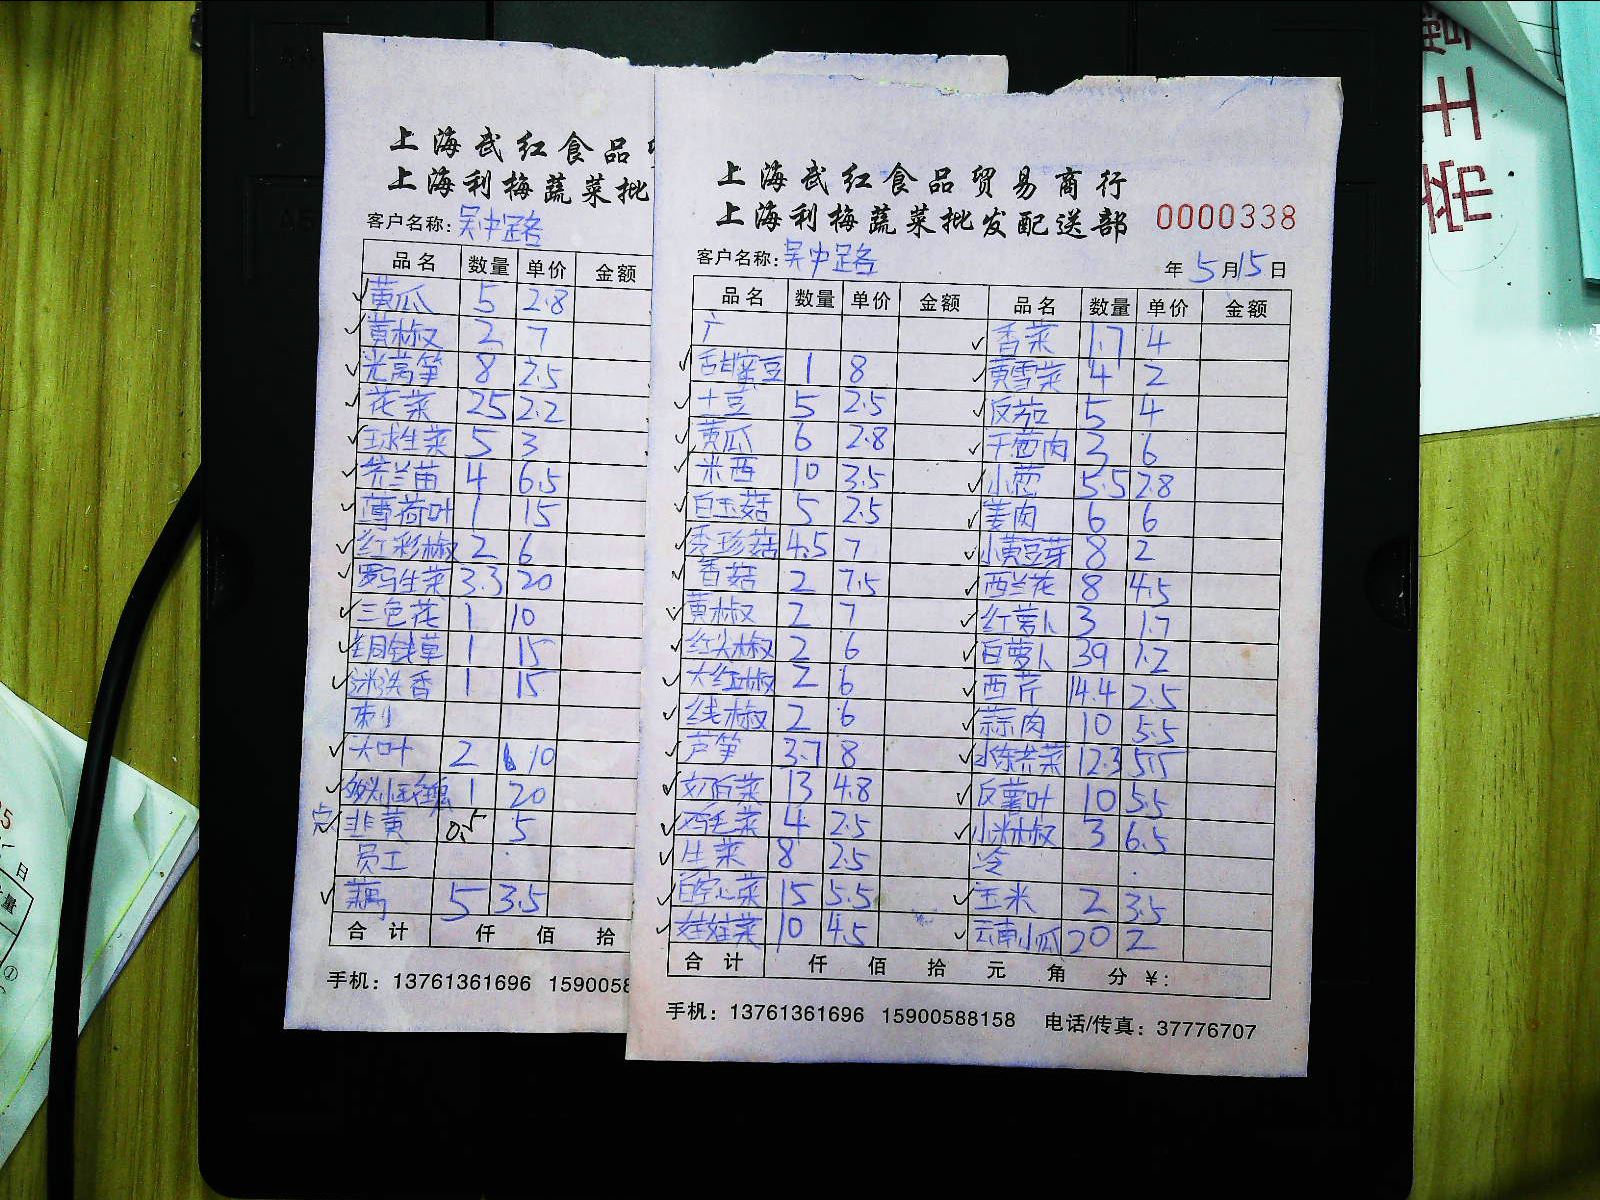 上海武红食品
上海利梅蔬菜批
客户名称: 吴中路
品名 数量 单价 金额
黄瓜 5 2.8
黄椒 2 7
光莴笋 8 2.5
花菜 25 2.2
球生菜 5 3
芥兰苗 4 6.5
薄荷叶 1 15
红彩椒 2 6
罗马生菜 3.3 20
三色花 1 10
铜钱草 1 15
迷迭香 1 15
大叶 2 10
1 20
点
韭黄 0.5 5
员工
藕 5 3.5
合计 仟 佰 拾
手机: 13761361696 1590058
上海武红食品贸易商行
上海利梅蔬菜批发配送部 0000338
客户名称: 吴中路 年 5 月 15 日
品名 数量 单价 金额 品名 数量 单价 金额
广 香菜 1.7 4
甜蜜豆 1 8 黄雪菜 4 2
土豆 5 2.5 反茄 5 4
黄瓜 6 2.8 干葱肉 3 6
米西 10 3.5 小葱 5.5 2.8
白玉菇 5 2.5 姜肉 6 6
秀珍菇 4.5 7 小黄豆芽 8 2
香菇 2 7.5 西兰花 8 4.5
黄椒 2 7 红萝卜 3 1.7
红尖椒 2 6 白萝卜 39 1.2
大红椒 2 6 西芹 14.4 2.5
线椒 2 6 蒜肉 10 5.5
芦笋 3.7 8 12.3 5.5
奶白菜 13 4.8 反薯叶 10 5.5
鸡毛菜 4 2.5 小米椒 3 6.5
生菜 8 2.5 冷
白空心菜 15 5.5 玉米 2 3.5
娃娃菜 10 4.5 云南小瓜 20 2
合计 仟 佰 拾 元 角 分 ¥:
手机: 13761361696 15900588158 电话/传真: 37776707